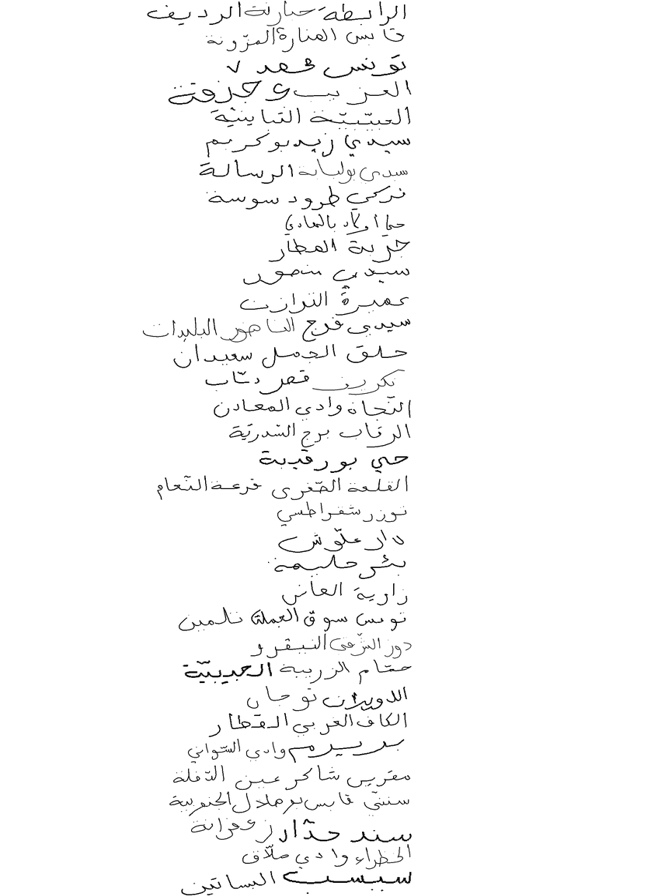 الرابطة حبارنة الرديف
قابس المنارة المزونة
تونس محمد ٧
العزيب وجزفتة
العبيّبيّخة التباينيّة
سيدي زيد بوكريم
سيدي بولبابة الرسالة
نركي طرود سوسة
حي أولاد بالهادي
خربة العطار
سيدي منصور
عميرة الترازت
سيدي فرج الناظور البليدات
حلق الجمل سعيدان
تكرين قصر دبّاب
النّجاة وادي المعادن
الرقاب برج السّدريّة
حي بورقيبة
القلعة الصّغرى فرعة النّعام
توزر شقراطسي
دار علّوش
بئر حليمة
زاوية العانس
تونس سوق العملة تلمين
دوز النّزهى النيقرو
حمّام الزريبة الحديبيّة
الدويرات توجان
الكاف الغربي القطار
بريرم وادي السّواني
مقرين شاكر عين الدّفلة
ستّي قابس بوهلال الجنوبية
سند حدّاد زعفرانة
الخطراء وادي ملاّق
سبيبت البساتين